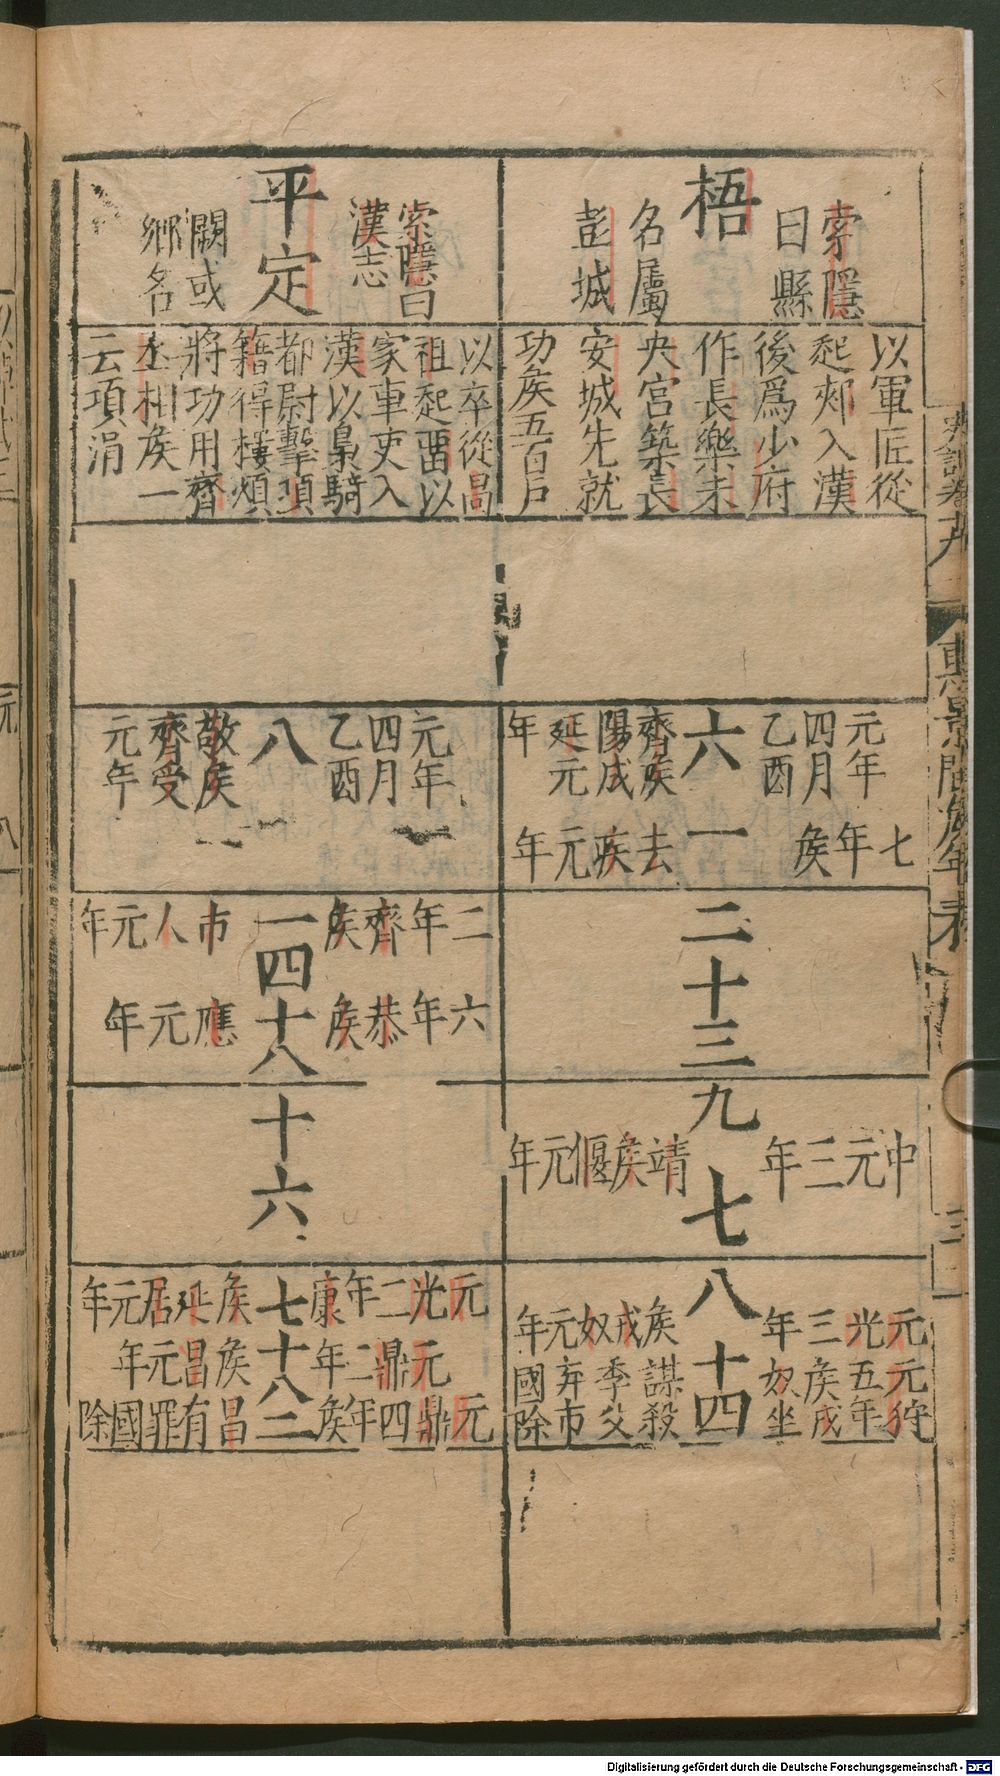 史記卷十九
惠景間侯年表
索隱
曰縣
梧
名屬
彭城
以軍匠從
起郟入漢
後爲少府
作長樂未
央宮築長
安城先就
功侯五百戶
元年
四月
乙酉
六
齊侯
陽成
延元
年
七年侯
一
去疾元年
二十三
九
中元三年
七
靖侯偃元年
八
元光三年
侯戎奴元年
十四
元狩
五年
侯戎
奴坐
謀殺
季父
弃市
國除
索隱曰
漢志
平定
闕或
鄉名
以卒從高
祖起畱以
家車吏入
漢以梟騎
都尉擊項
籍得樓煩
將功用齊
丞相侯一
云項涓
元年
四月
乙酉
八
敬侯
齊受
元年
一
二年齊侯
市人元年
四
六年恭侯
應元年
十八
十六
七
元光二年康
侯延居元年
十八
元鼎二年
侯昌元年
二
元鼎四年侯
昌有罪國除
Digitalisierung gefördert durch die Deutsche Forschungsgemeinschaft - DFG